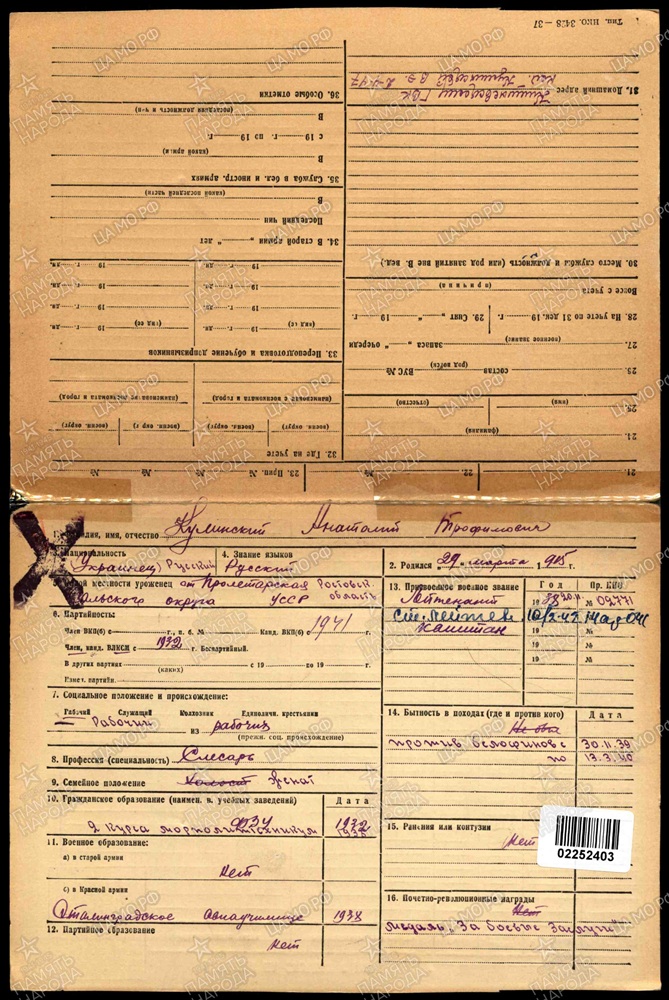 Тип. НКО. 3428—37
31. Домашний адрес
30. Место службы и должность (или род занятий вне В. вед.)
Вовсе с учета
(причина)
28. На учете по 31 дек. 19 г. 29. Снят „ “ 19 г.
27. запаса „ “ очереди
(военное звание)
26. состав ВУС №
(род войск)
25.
(имя) (отчество)
24.
(фамилия)
21. 22. 23. Прип. № № № №
36. Особые отметки
(последняя должность и ч-п)
В
с 19 г. по 19 г.
(какой армии)
В
35. Служба в бел. и иностр. армиях
(какой последней части)
В
Последний чин
34. В старой армии „ “ лет
19 дн. 19 дн.
19 дн. 19 дн.
19 дн. 19 дн.
19 дн. 19 дн.
(вид сс) (вид сс)
33. Переподготовка и обучение допризывников
(наименование военкомата и город) (наименование военкомата и город)
(военн. округ) (военн. округ) (военн. округ) (военн. округ)
32. Где на учете
имя, отчество Кулинский Анатолий Трофимович
Национальность Украинец Русский
4. Знание языков Русский
2. Родился „29“ марта 1915 г.
местности уроженец ст. Пролетарская Ростовск.
Сальского округа УССР область
6. Партийность:
Член ВКП(б) с г., п. б. № Канд. ВКП(б) с 1941
Член, канд. ВЛКСМ с 1932 г. Беспартийный.
В других партиях с 19 по 19 г.
(каких)
Канд. партийн.
7. Социальное положение и происхождение:
Рабочий Служащий Колхозник Единоличн. крестьянин
Рабочий из рабочих
(прежн. соц. происхождение)
8. Профессия (специальность) Слесарь
9. Семейное положение Холост Женат
10. Гражданское образование (наимен. в. учебных заведений) Дата
ФЗУ 1932
2 курса морполитехникум
11. Военное образование:
а) в старой армии
Нет
с) в Красной армии
Сталинградское авиаучилище 1938
12. Партийное образование
нет
13. Присвоенное военное звание Год Пр. НКО
Лейтенант № 02771
Ст. лейтен.
капитан
19 №
19 №
14. Бытность в походах (где и против кого) Дата
Не был
против белофинов с 30.11.39
по 13.3.40
15. Ранения или контузии
Нет
02252403
16. Почетно-революционные награды
Нет
медаль „За боевые заслуги“
ПАМЯТЬ НАРОДА
ЦАМО.РФ